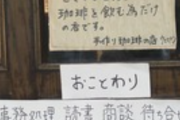 珈琲を飲む為だけ
の店です。
手作り珈琲の店
おことわり
事務処理 読書 商談 待ち合